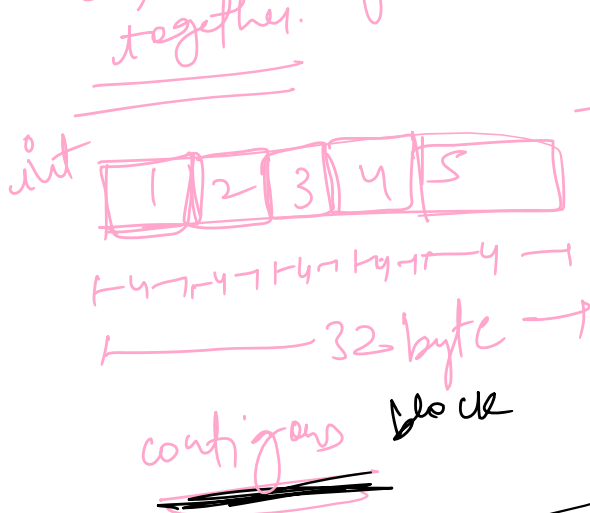 together.
int
1 2 3 4 5
4 4 4 4 4
32 byte
contigous block